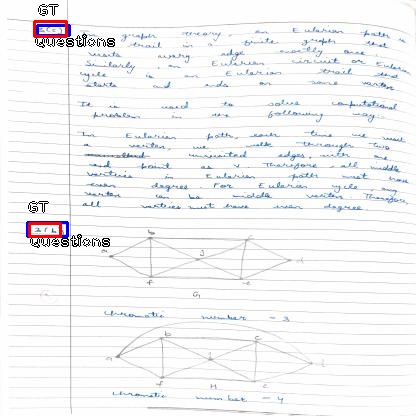 GT
Questions
graph theory, an Eulerian path is
trail in a finite graph that
visits every edge exactly once.
Similarly, an Eulerian circuit or Eulerian
cycle is an Eulerian trail that
starts and ends on same vertex
It is used to solve computational
problem in the following way..
In Eulerian path, each time we visit
a vertex, we walk through two
unvisited edges, with one
end point as v Therefore, all middle
vertices in Eulerian path must have
even degree. For Eulerian cycle, any
vertex can be middle vertex. Therefore,
all vertices must have even degree
GT
2(b)
Questions
a b c d e f g
G
Chromatic number = 3
a b c d e f
H
Chromatic number = 4